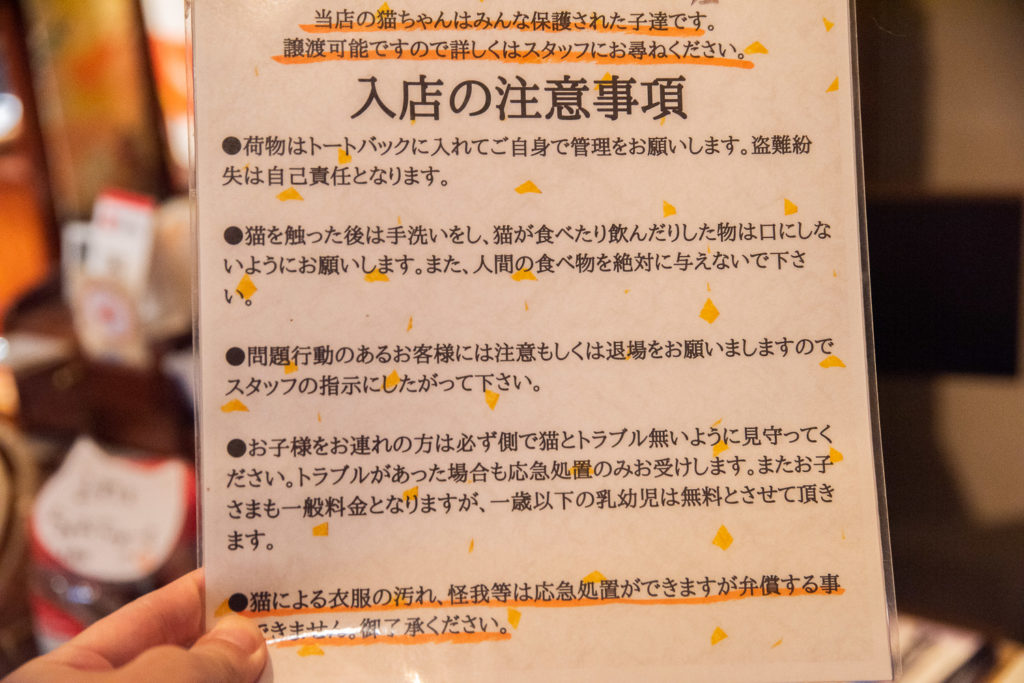 当店の猫ちゃんはみんな保護された子達です。
譲渡可能ですので詳しくはスタッフにお尋ねください。
入店の注意事項
●荷物はトートバックに入れてご自身で管理をお願いします。盗難紛
失は自己責任となります。
●猫を触った後は手洗いをし、猫が食べたり飲んだりした物は口にしな
いようにお願いします。また、人間の食べ物を絶対に与えないで下さ
い。
●問題行動のあるお客様には注意もしくは退場をお願いましますので
スタッフの指示にしたがって下さい。
●お子様をお連れの方は必ず側で猫とトラブル無いように見守ってく
ださい。トラブルがあった場合も応急処置のみお受けします。またお子
さまも一般料金となりますが、一歳以下の乳幼児は無料とさせて頂き
ます。
●猫による衣服の汚れ、怪我等は応急処置ができますが弁償する事
できません。御了承ください。